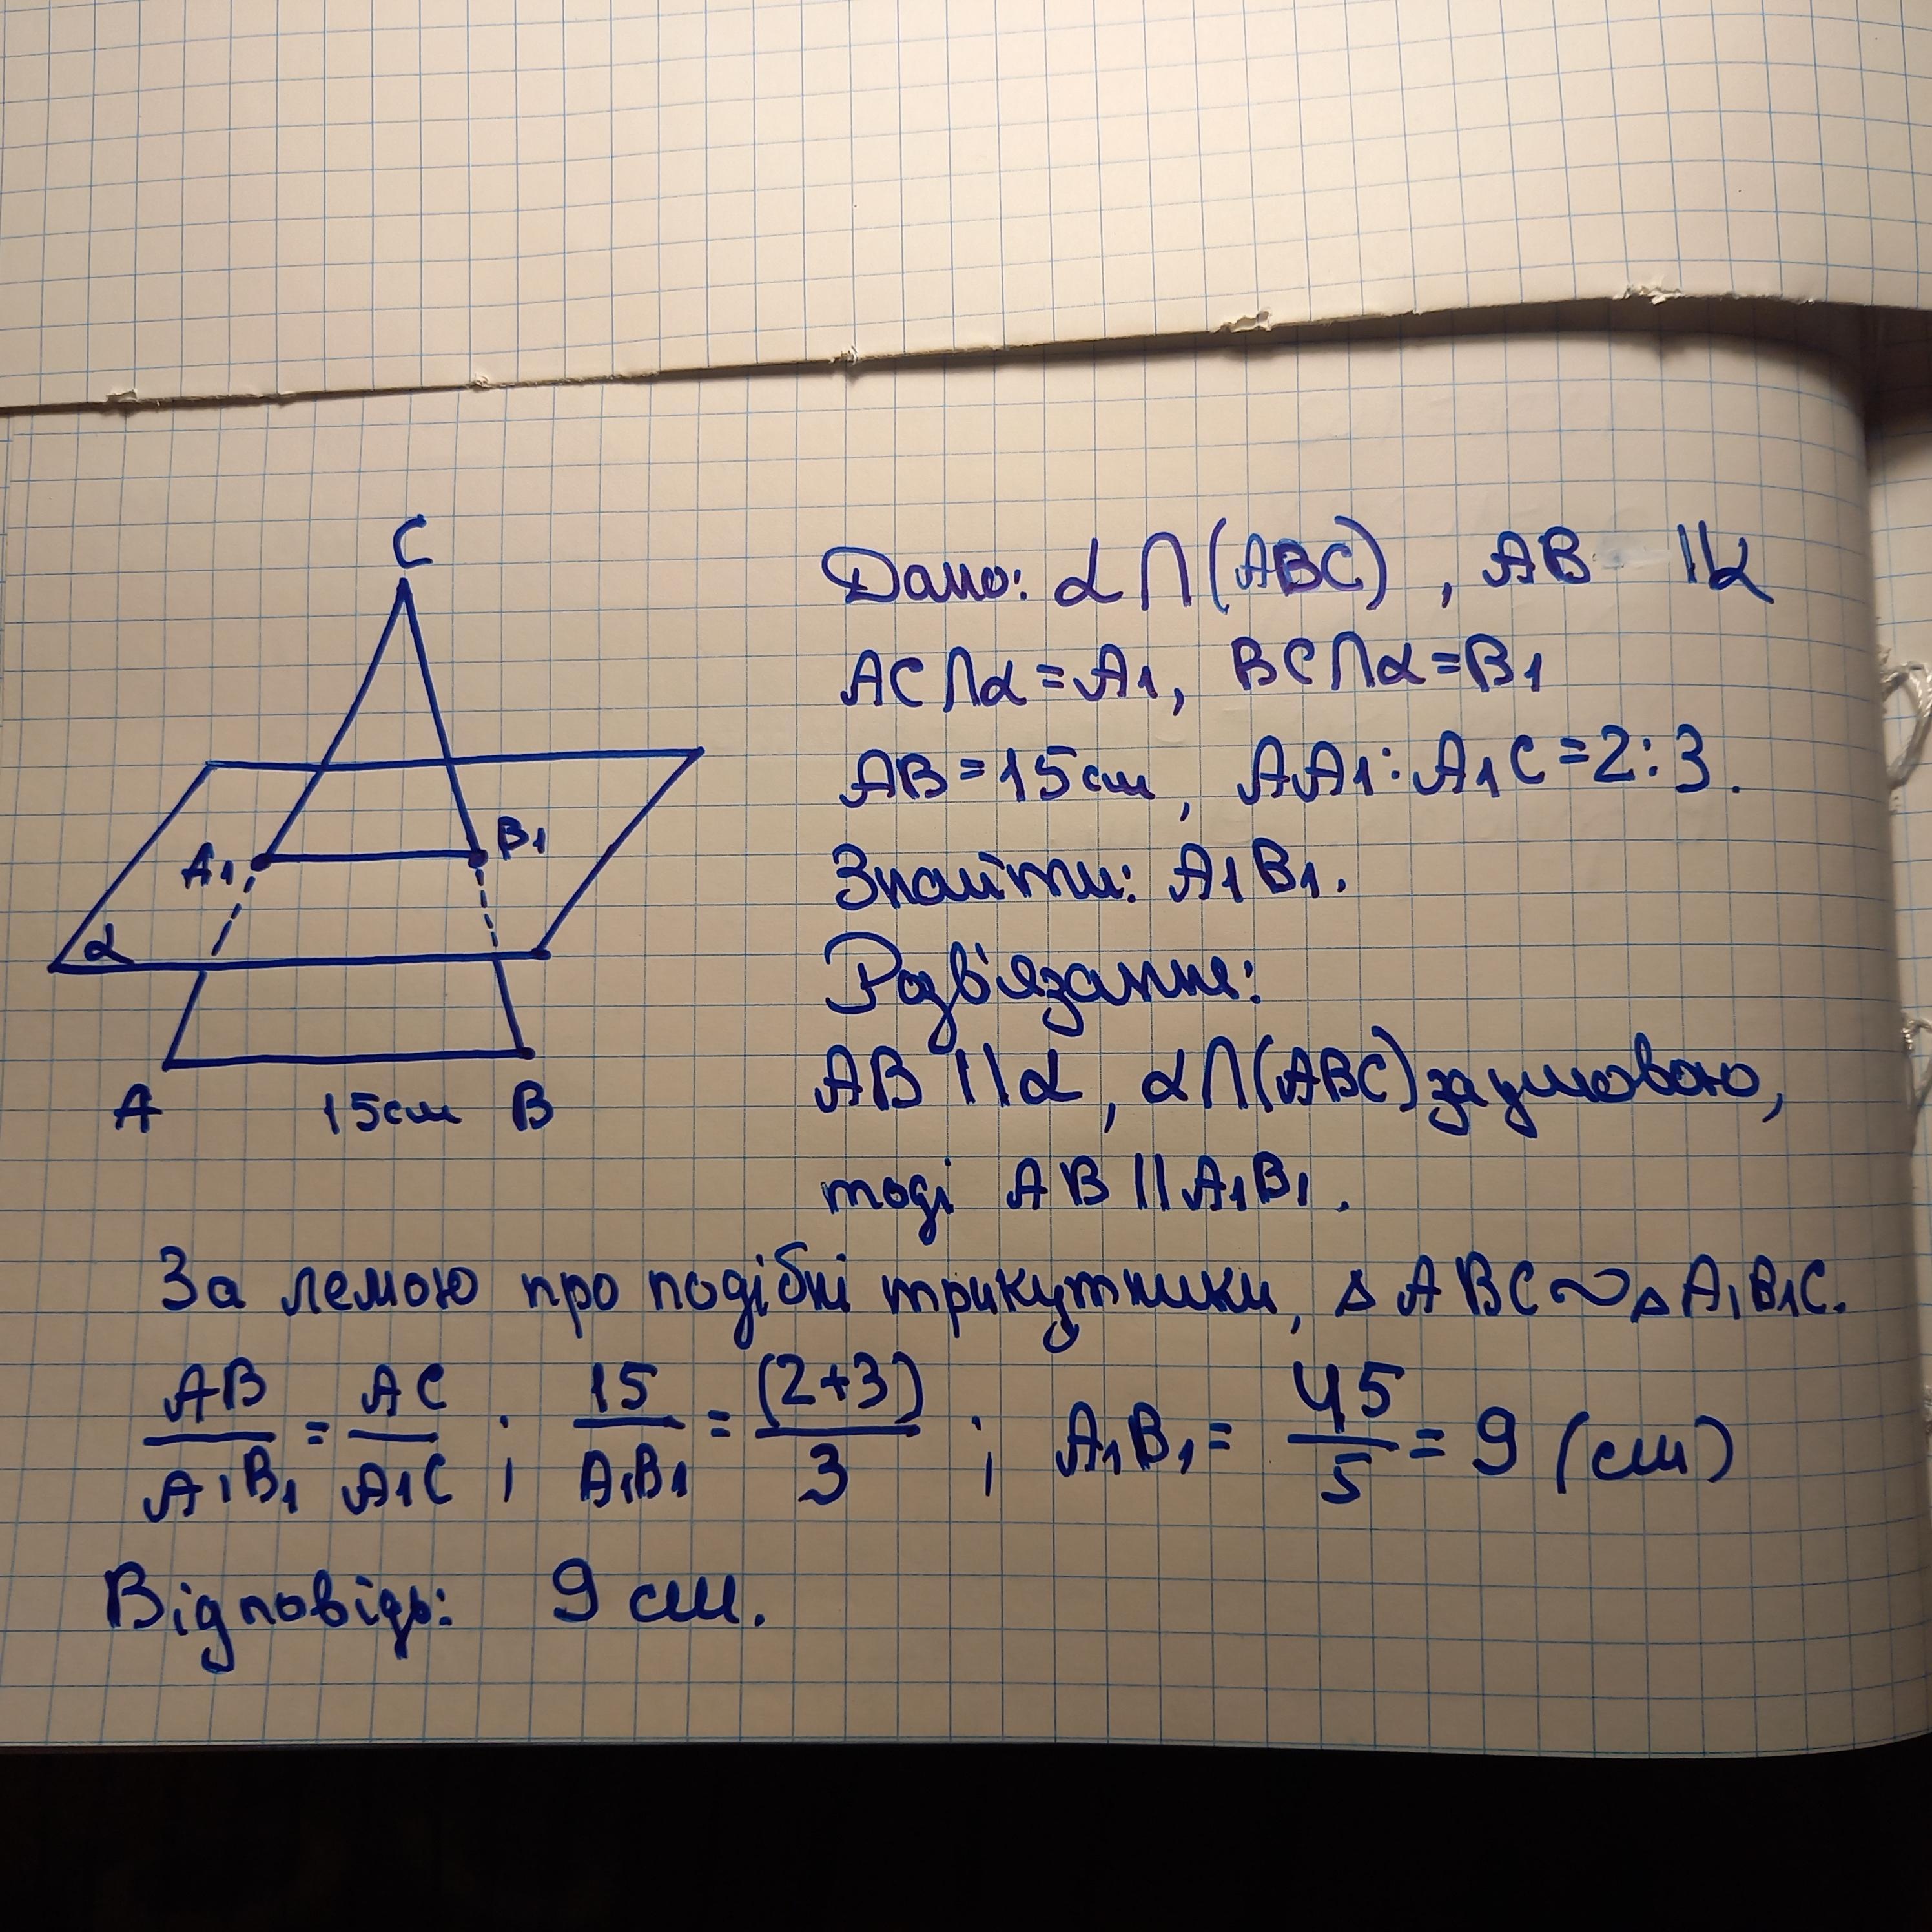 C
A₁
B₁
α
A 15 см B
Дано: α ∩ (ABC) , AB || α
AC ∩ α = A₁, BC ∩ α = B₁
AB = 15 см, AA₁ : A₁C = 2 : 3.
Знайти: A₁B₁.
Розв'язання:
AB || α, α ∩ (ABC) за умовою,
тоді AB || A₁B₁.
За лемою про подібні трикутники, △ ABC ~ △ A₁B₁C.
AB/A₁B₁ = AC/A₁C ; 15/A₁B₁ = (2+3)/3 ; A₁B₁ = 45/5 = 9 (см)
Відповідь: 9 см.